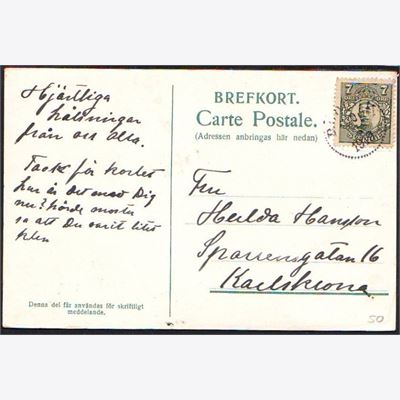 Hjärtliga
hälsningar
från oss alla.
Tack för kortet
hur är det med Dig
nu? hörde moster
sa att Du varit litet
klen
Denna del får användas för skriftligt
meddelande.
BREFKORT.
Carte Postale.
(Adressen anbringas här nedan)
7 7
Fru
Hulda Hansson
Sparregatan 16
Karlskrona.
50